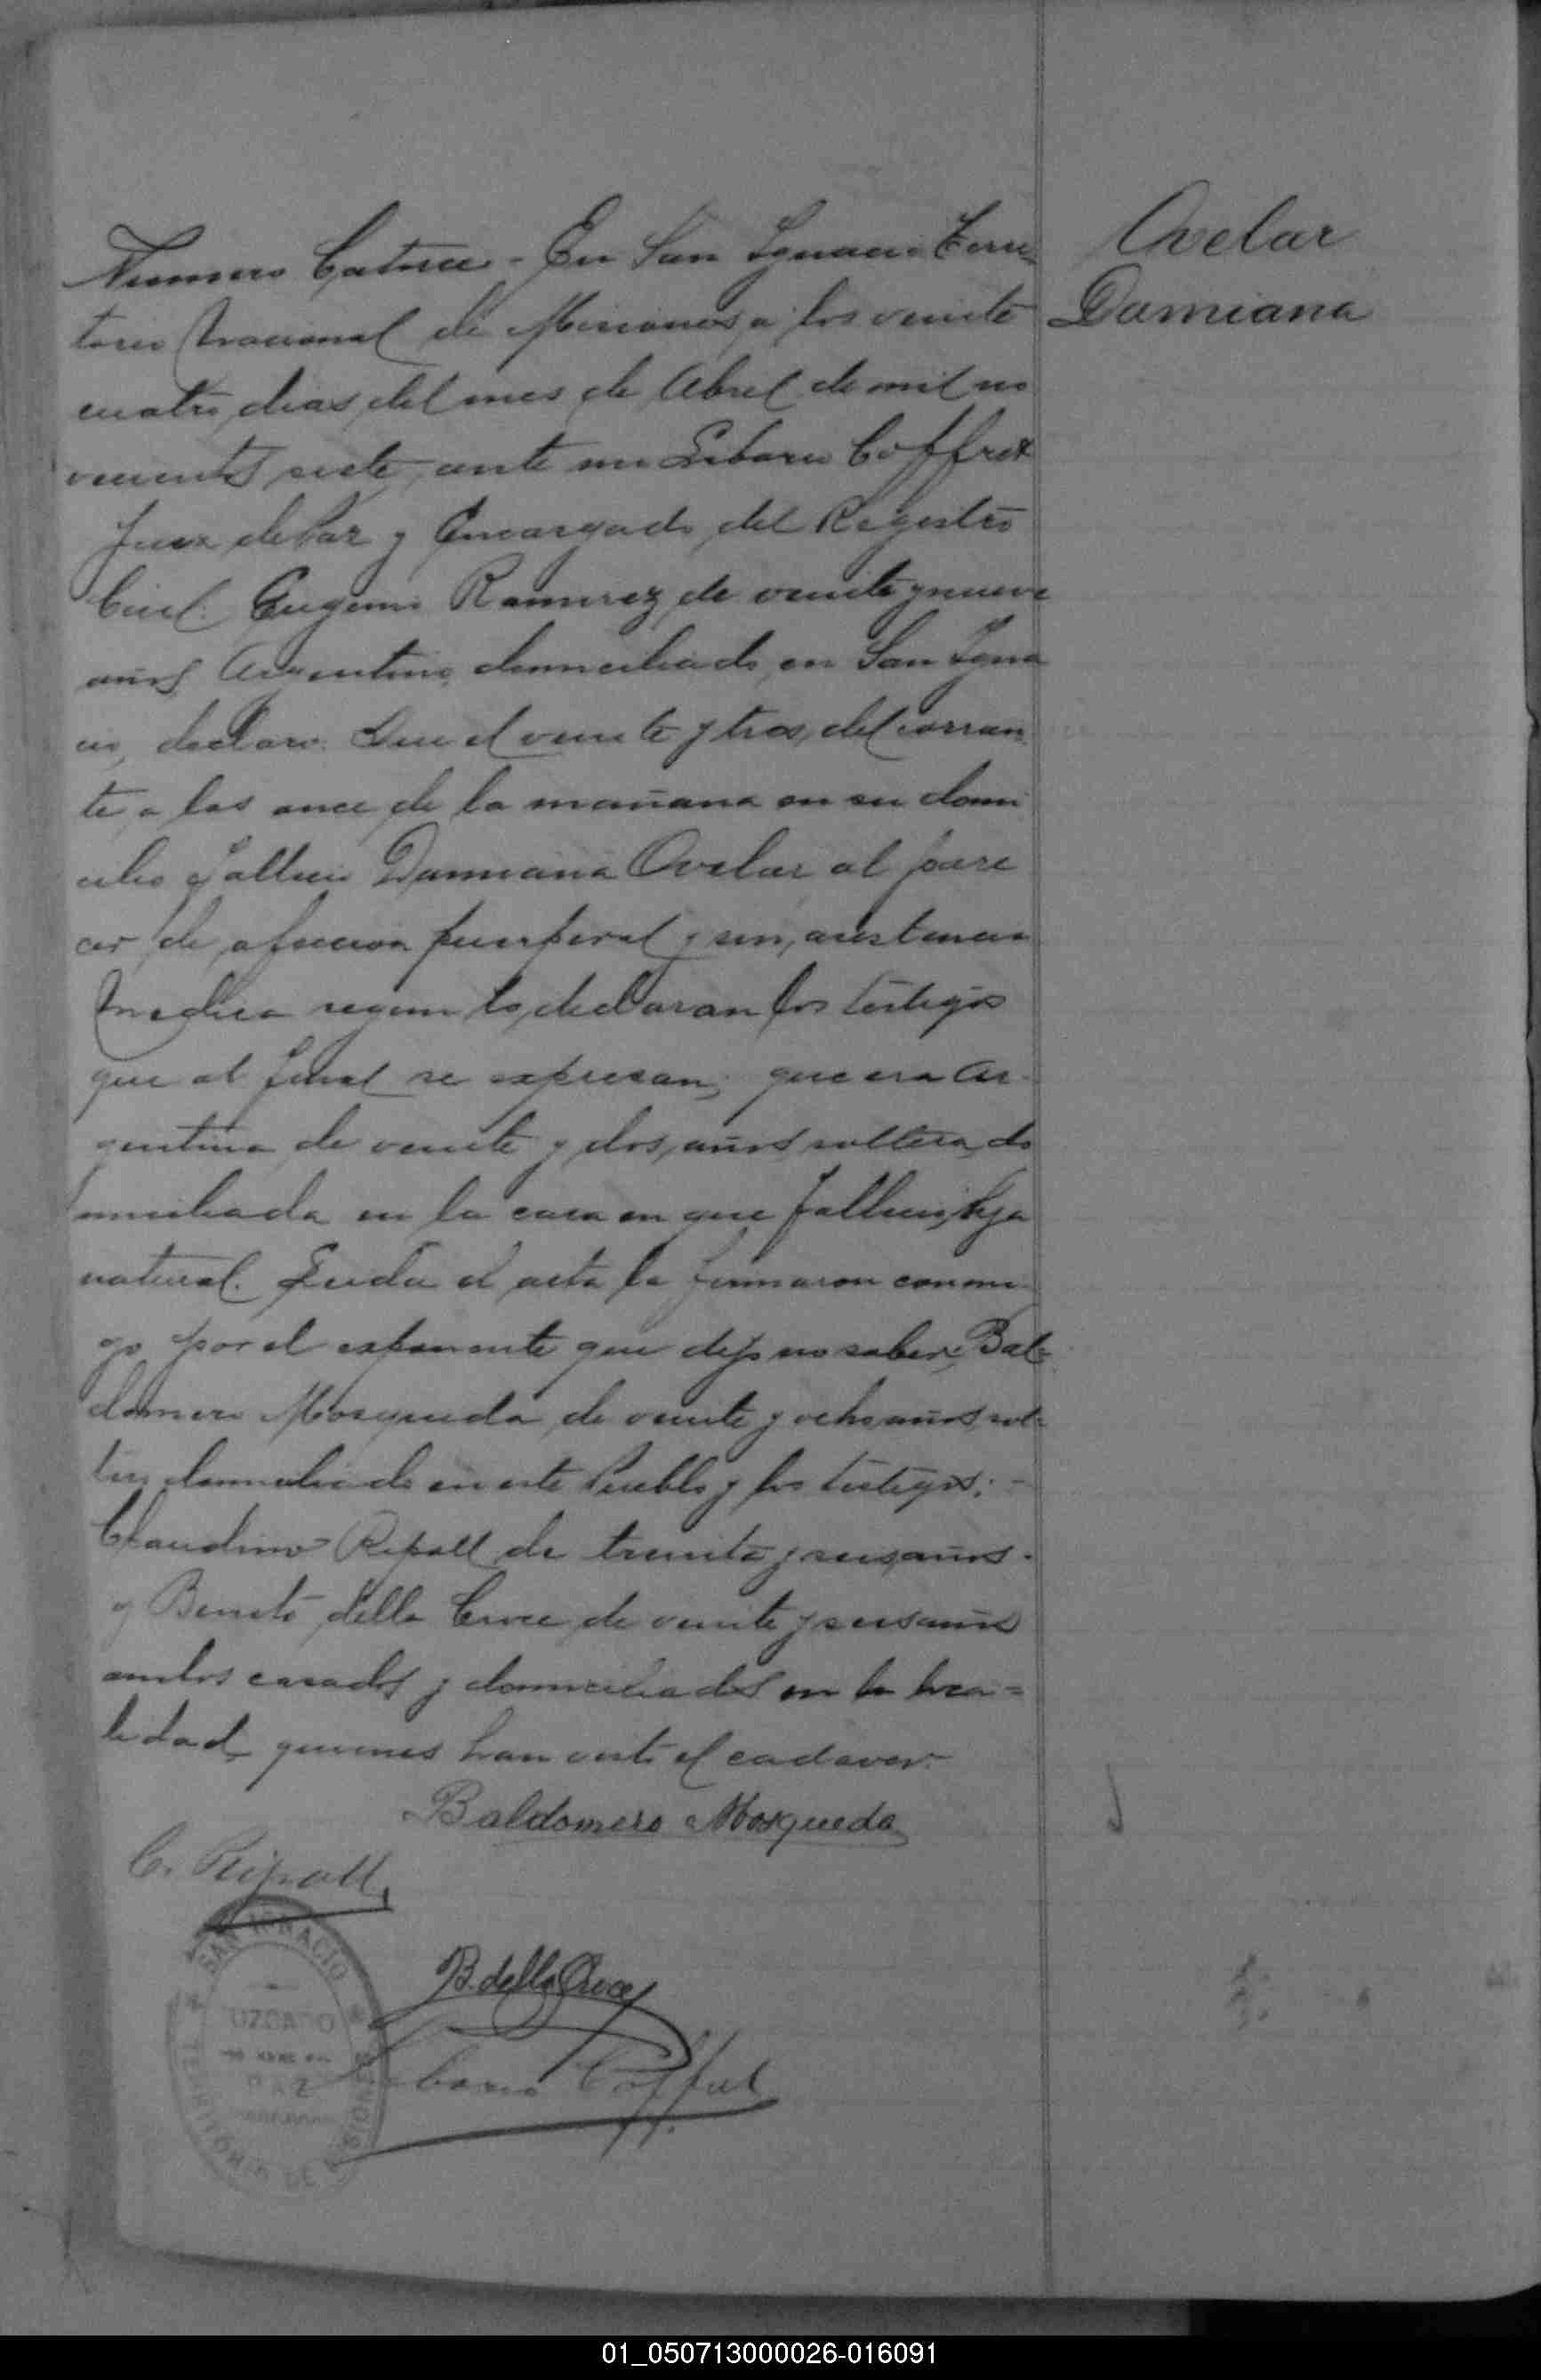 Ovelar
Damiana
Numero Catorce - En San Ignacio Terri-
torio Nacional de Misiones, a los veinte
cuatro dias del mes de Abril de mil no
vecientos siete, ante mi Liborio Coffret
Juez de Paz y Encargado del Registro
Civil. Eugenio Ramirez de veinte y nueve
años Argentino, domiciliado, en San Igna
cio, declaro: Que el veinte y tres del corrien
te, a las once de la mañana en su domi
cilio fallecio Damiana Ovelar al pare
cer de afeccion puerperal y sin, asistencia
Medica segun lo declaran los testigos
que al final se expresan; que era Ar-
gentina de veinte y dos, años, soltera, do
miciliada en la casa en que fallecio, hija
natural. Leida el acta la firmaron conmi
go por el exponente que dijo no saber, Bal-
domero Mosqueda de veinte y ocho años, sol-
tero domiciliado en este Pueblo y los testigos: -
Claudino Ripoll de treinta y seis, años -
y Benito della Croce de veinte y seis años
ambos casados y domiciliados en la loca=
lidad quienes han visto el cadaver -
Baldomero Mosqueda
C. Ripoll
B. della Croce
Liborio Coffret
SAN IGNACIO
JUZGADO
DE
PAZ
TERRITORIO DE MISIONES
01_050713000026-016091